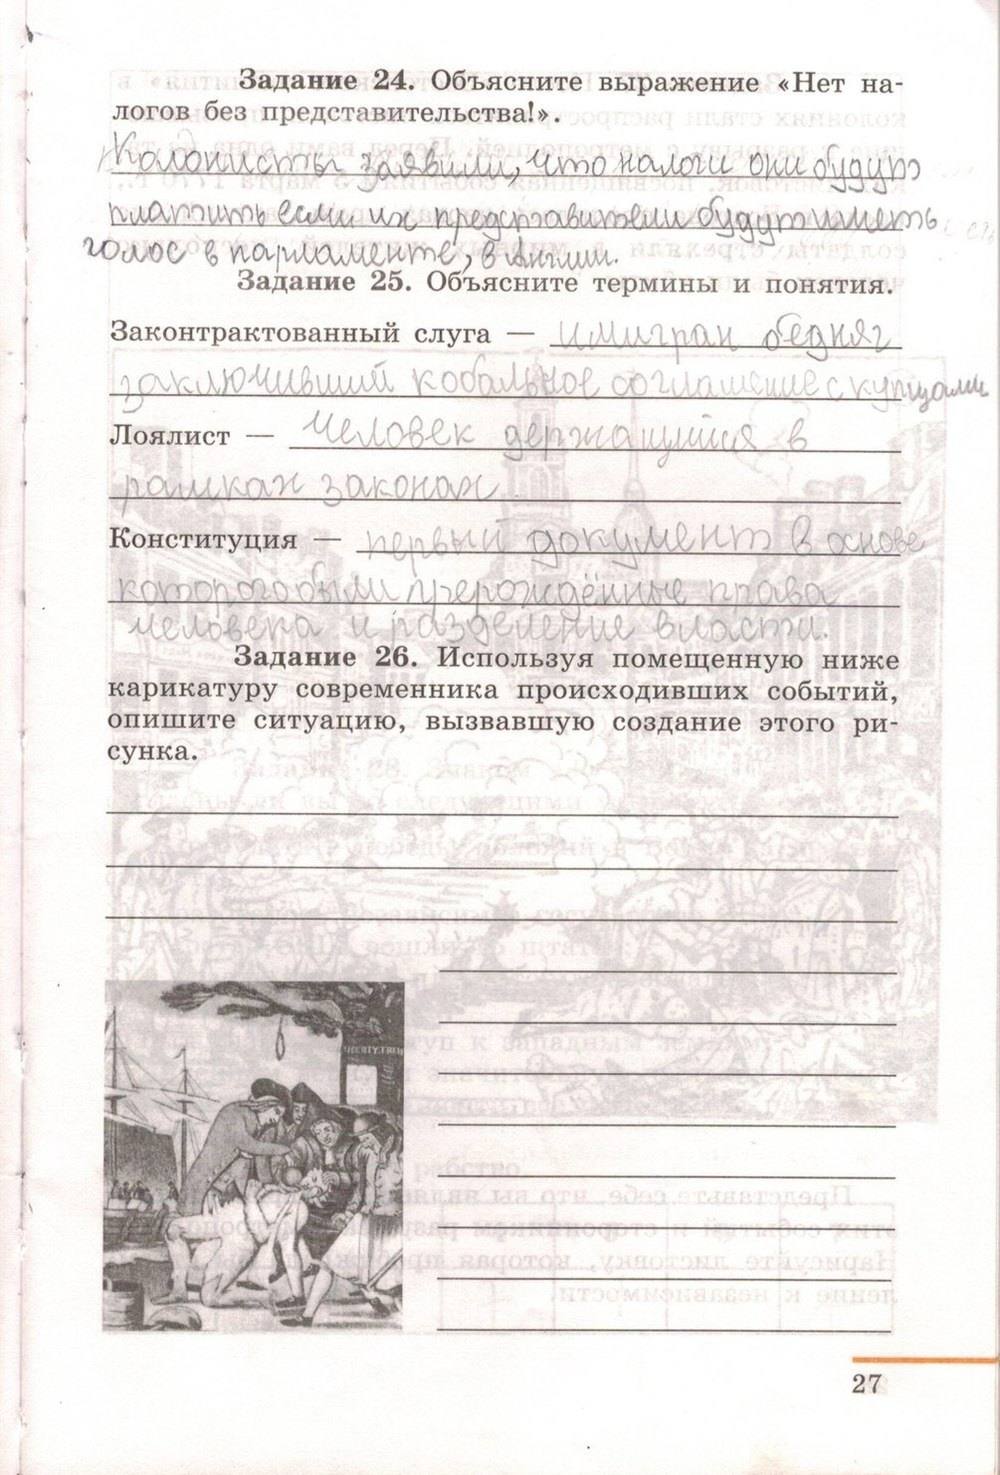 Задание 24. Объясните выражение «Нет на-
логов без представительства!».
Колонисты заявили, что налоги они будут
платить если их представители будут иметь
голос в парламенте, в Англии.
Задание 25. Объясните термины и понятия.
Законтрактованный слуга — имигран бедняг
заключивший кобальное соглашение с купцами
Лоялист — Человек держащийся в
рамках законах
Конституция — первый документ в основе
которого были прерождённые права
человека и разделение власти.
Задание 26. Используя помещенную ниже
карикатуру современника происходивших событий,
опишите ситуацию, вызвавшую создание этого ри-
сунка.
27